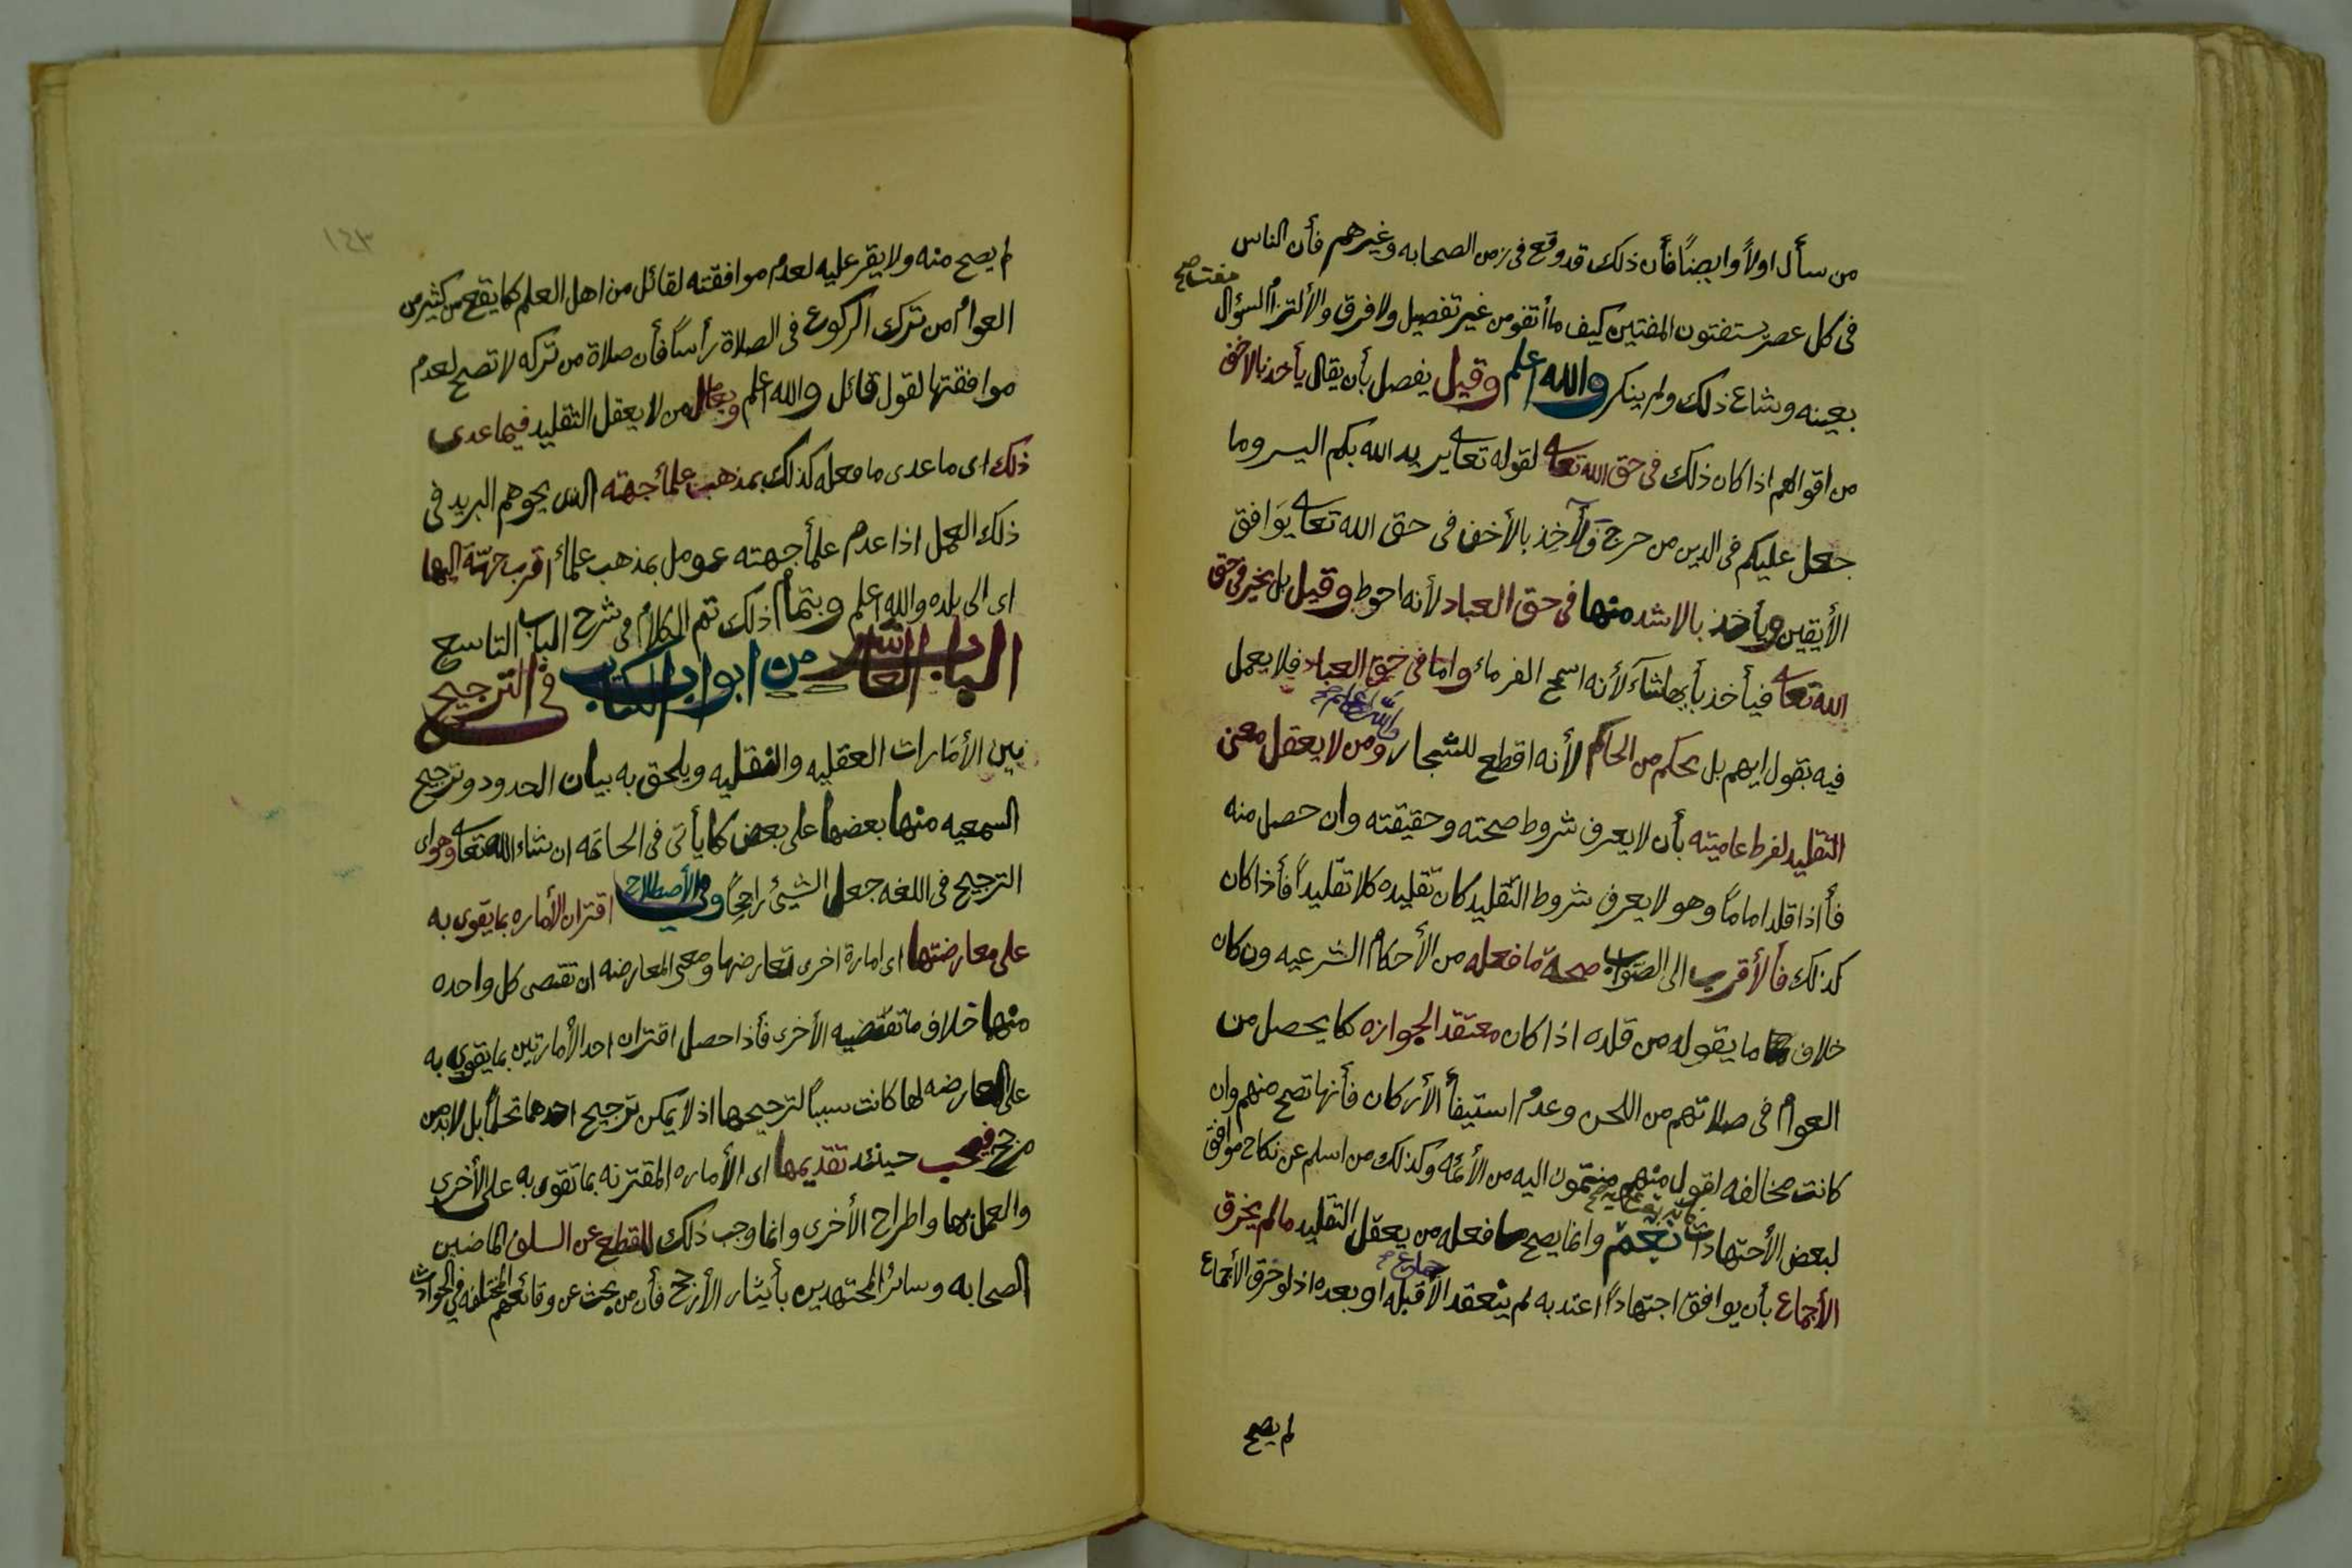 من سأل اولاً وايضاً فأن ذلك قد وقع فى زمن الصحابه وغيرهم فأن الناس
فى كل عصر يستفتون المفتين كيف ما أتفق من غير تفصيل ولا فرق والألتزام السؤال مفت صح
بعينه وشاع ذلك ولم ينكر والله اعلم وقيل يفصل بأن يقال يأخذ بالاخف
من اقوالهم اذا كان ذلك فى حق الله تعا لقوله تعا يريد الله بكم اليسر وما
جعل عليكم فى الدين من حرج فألآخذ بالأخف فى حق الله تعا يوافق
الأيتين ويأخذ بالاشد منها فى حق العباد لأنه احوط وقيل بل يخير فى حق
الله تعا فيأخذ بأيها شآء لأنه اسمح الغرماء واما فى حق العباد فلا يعمل
فيه بقول ايهم بل بحكم من الحاكم لأنه اقطع للشجار والله اعلم صح ومن لا يعقل معنى
التقليد لفرط عاميته بأن لا يعرف شروط صحته وحقيقته وان حصل منه
فأذا قلد اماماً وهو لا يعرف شروط التقليد كان تقليده كلا تقليداً فأذا كان
كذلك فألأقرب الى الصواب صحة ما فعله من الأحكام الشرعيه ون كان
خلاف ما يقوله من قلده اذا كان معتقد الجوازه كما يحصل من
العوام فى صلاتهم من اللحن وعدم استيفأ الأركان فأنها تصح منهم وان
كانت مخالفه لقول منهم منتمون اليه من الأئمه وكذلك من اسلم عن نكاح موافق
لبعض الأجتهادات نعم وانما يصح ما فعله من يعقل التقليد مالم يخرق
الأجماع بأن يوافق اجتهاداً اعتد به لم ينعقد الأجماع قبله او بعده اذ لو خرق الأجماع
لم يصح
١٤٣
لم يصح منه ولا يقر عليه لعدم موافقته لقائل من اهل العلم كما يقع من كثير من
العوام من ترك الركوع فى الصلاة رأساً فأن صلاة من تركه لا تصح لعدم
موافقتها لقول قائل والله اعلم ويعامل من لا يعقل التقليد فيما عدى
ذلك اى ما عدى ما فعله كذلك بمذهب علمأ جهته الذى يحوهم البريد فى
ذلك العمل اذا عدم علمأ جهته عومل بمذهب علماء اقرب جهة اليها
اى الى بلده والله اعلم وبتمام ذلك تم الكلام فى شرح الباب التاسع
الباب العاشر من ابواب الكتاب فى الترجيح
بين الأمارات العقليه والنقليه ويلحق به بيان الحدود وترجيح
السمعيه منها بعضها على بعض كما يأتى فى الخاتمه ان شاء الله تعا وهو اى
الترجيح فى اللغه جعل الشيئ راجحاً وفى الأصطلاح اقتران الأماره بما يقوى به
على معارضتها اى امارة اخرى تعارضها ومعنى المعارضه ان تقتضى كل واحده
منها خلاف ما تقتضيه الأخرى فأذا حصل اقتران احد الأمارتين بما يقوى به
على المعارضه لها كانت سبباً لترجيحها اذ لا يمكن ترجيح احدهما تحكماً بل لابد من
مرجح فيجب حينئذ تقديمها اى الأماره المقترنه بما تقوى به على الأخرى
والعمل بها واطراح الأخرى وانما وجب ذلك للقطع عن السلف الماضيين
الصحابه وسائر المجتهدين بأيثار الأرجح فأن من بحث عن وقائعهم المختلفه فى الحوادث